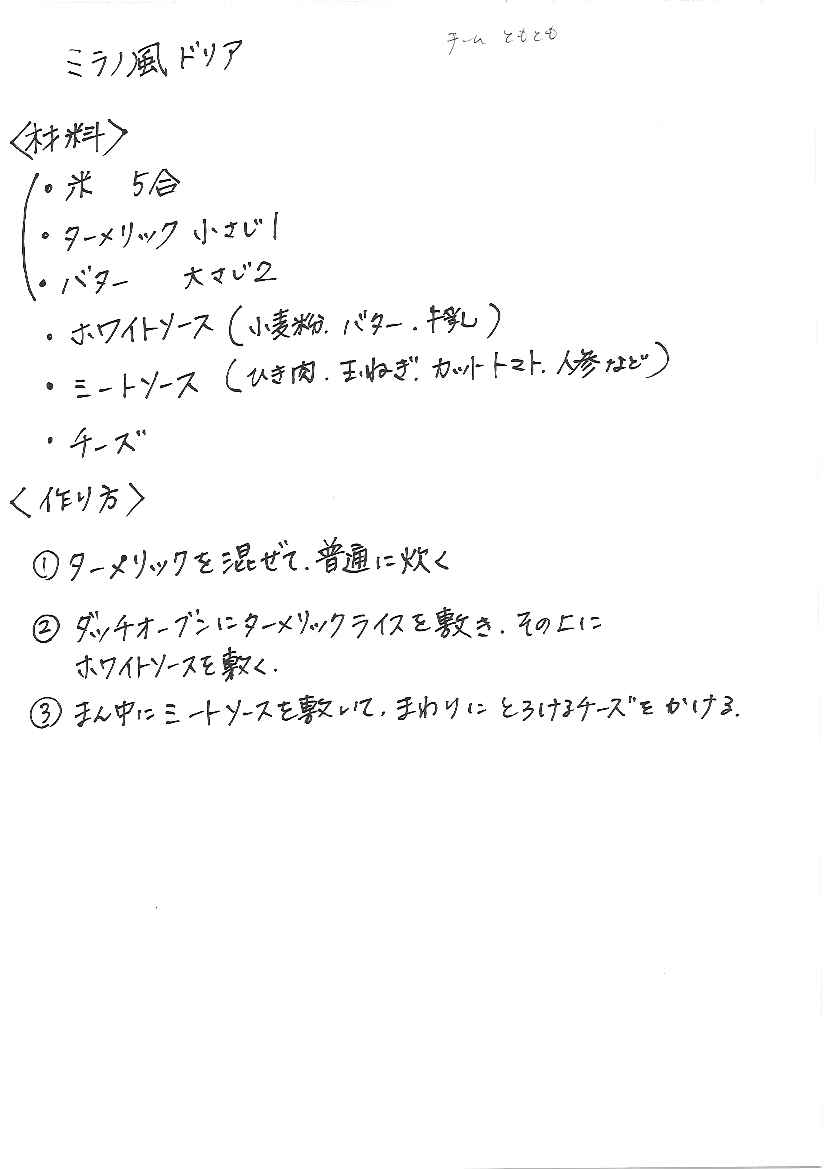 チーム ともとも
ミラノ風ドリア
〈材料〉
・米 5合
・ターメリック 小さじ1
・バター 大さじ2
・ホワイトソース(小麦粉.バター.牛乳)
・ミートソース(ひき肉.玉ねぎ.カットトマト.人参など)
・チーズ
〈作り方〉
①ターメリックを混ぜて.普通に炊く
②ダッチオーブンにターメリックライスを敷き.その上に
ホワイトソースを敷く.
③まん中にミートソースを敷いて.まわりにとろけるチーズをかける.